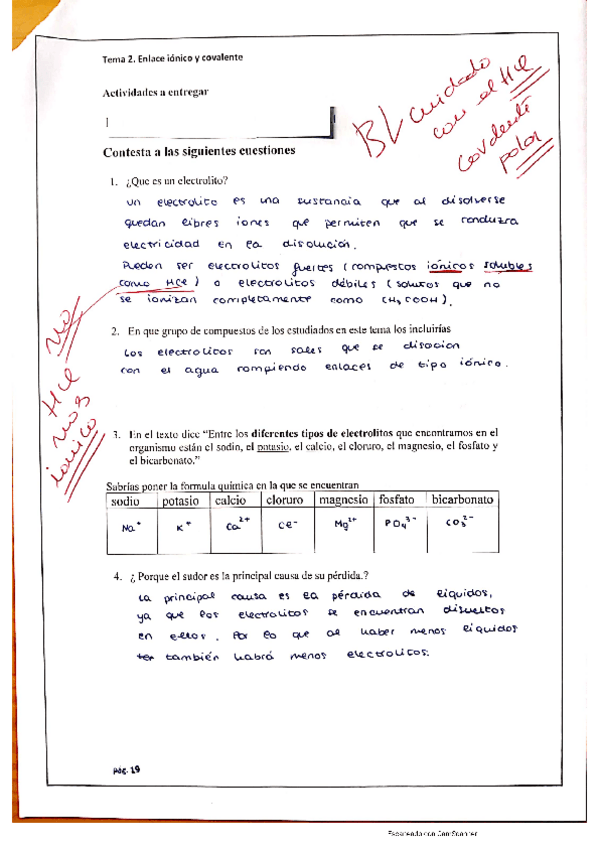 Tema 2. Enlace iónico y covalente
Actividades a entregar
BL cuidado
con el HCl
covalente
polar
Contesta a las siguientes cuestiones
1. ¿Que es un electrolito?
un electrolito es una sustancia que al disolverse
quedan libres iones que permiten que se conduzca
electricidad en la disolución.
Pueden ser electrolitos fuertes (compuestos iónicos solubles
como HCl) o electrolitos débiles (solutos que no
se ionizan completamente como CH3COOH).
2. En que grupo de compuestos de los estudiados en este tema los incluirías
Los electrolitos son sales que se disocian
con el agua rompiendo enlaces de tipo iónico.
HCl no
nos
ionico
3. En el texto dice “Entre los diferentes tipos de electrolitos que encontramos en el
organismo están el sodio, el potasio, el calcio, el cloruro, el magnesio, el fosfato y
el bicarbonato.”
Sabrías poner la formula química en la que se encuentran
sodio potasio calcio cloruro magnesio fosfato bicarbonato
Na+ K+ Ca2+ Cl- Mg2+ PO43- CO32-
4. ¿ Porque el sudor es la principal causa de su pérdida.?
La principal causa es la pérdida de líquidos,
ya que los electrolitos se encuentran disueltos
en ellos. Por lo que al haber menos líquidos
también habrá menos electrolitos.
pág. 19
Escaneado con CamScanner